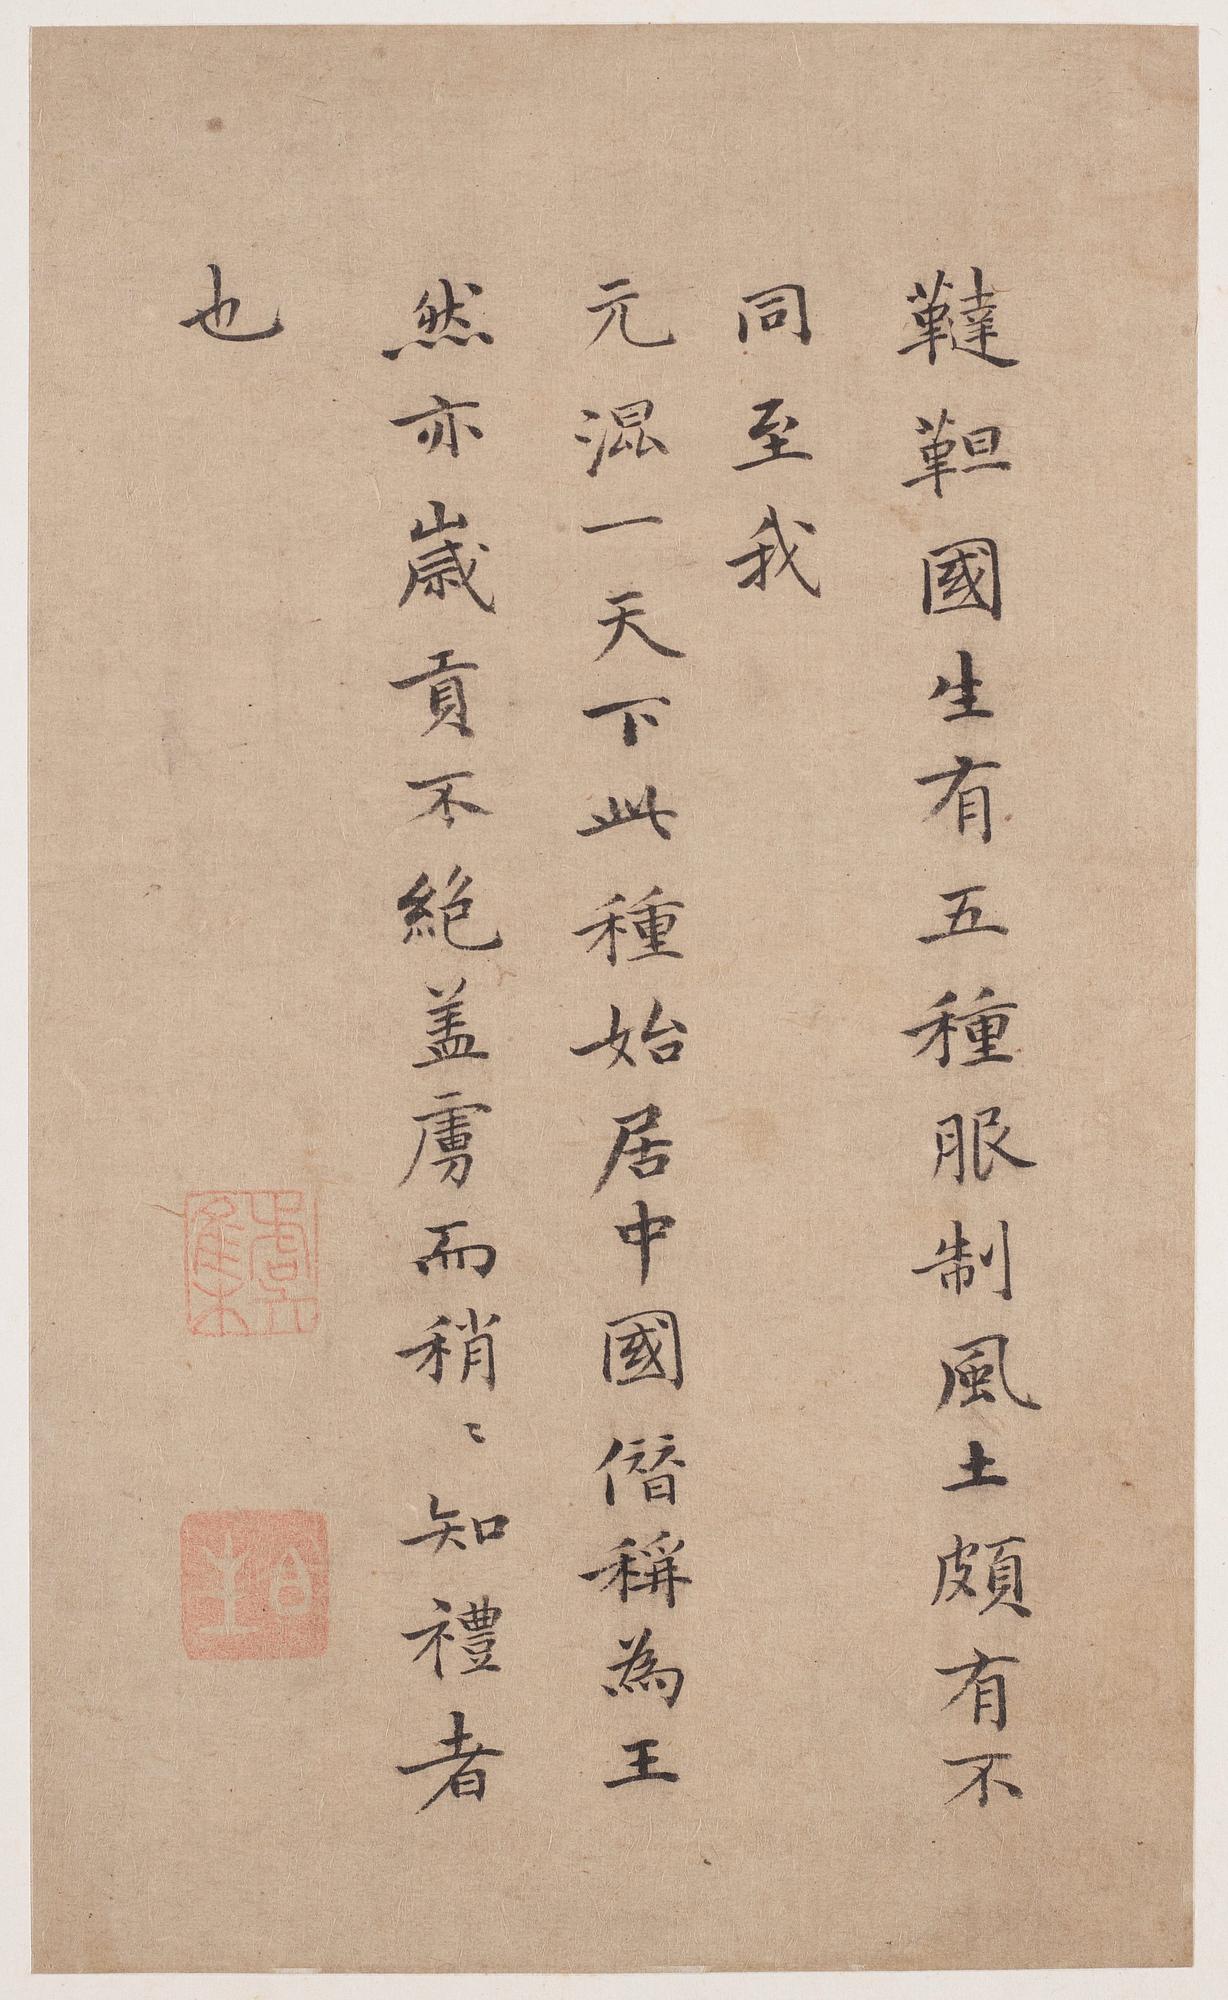 韃靼國生有五種服制風土頗有不
同至我
元混一天下此種始居中國僭稱為王
然亦歲貢不絕盖虜而稍〻知禮者
也